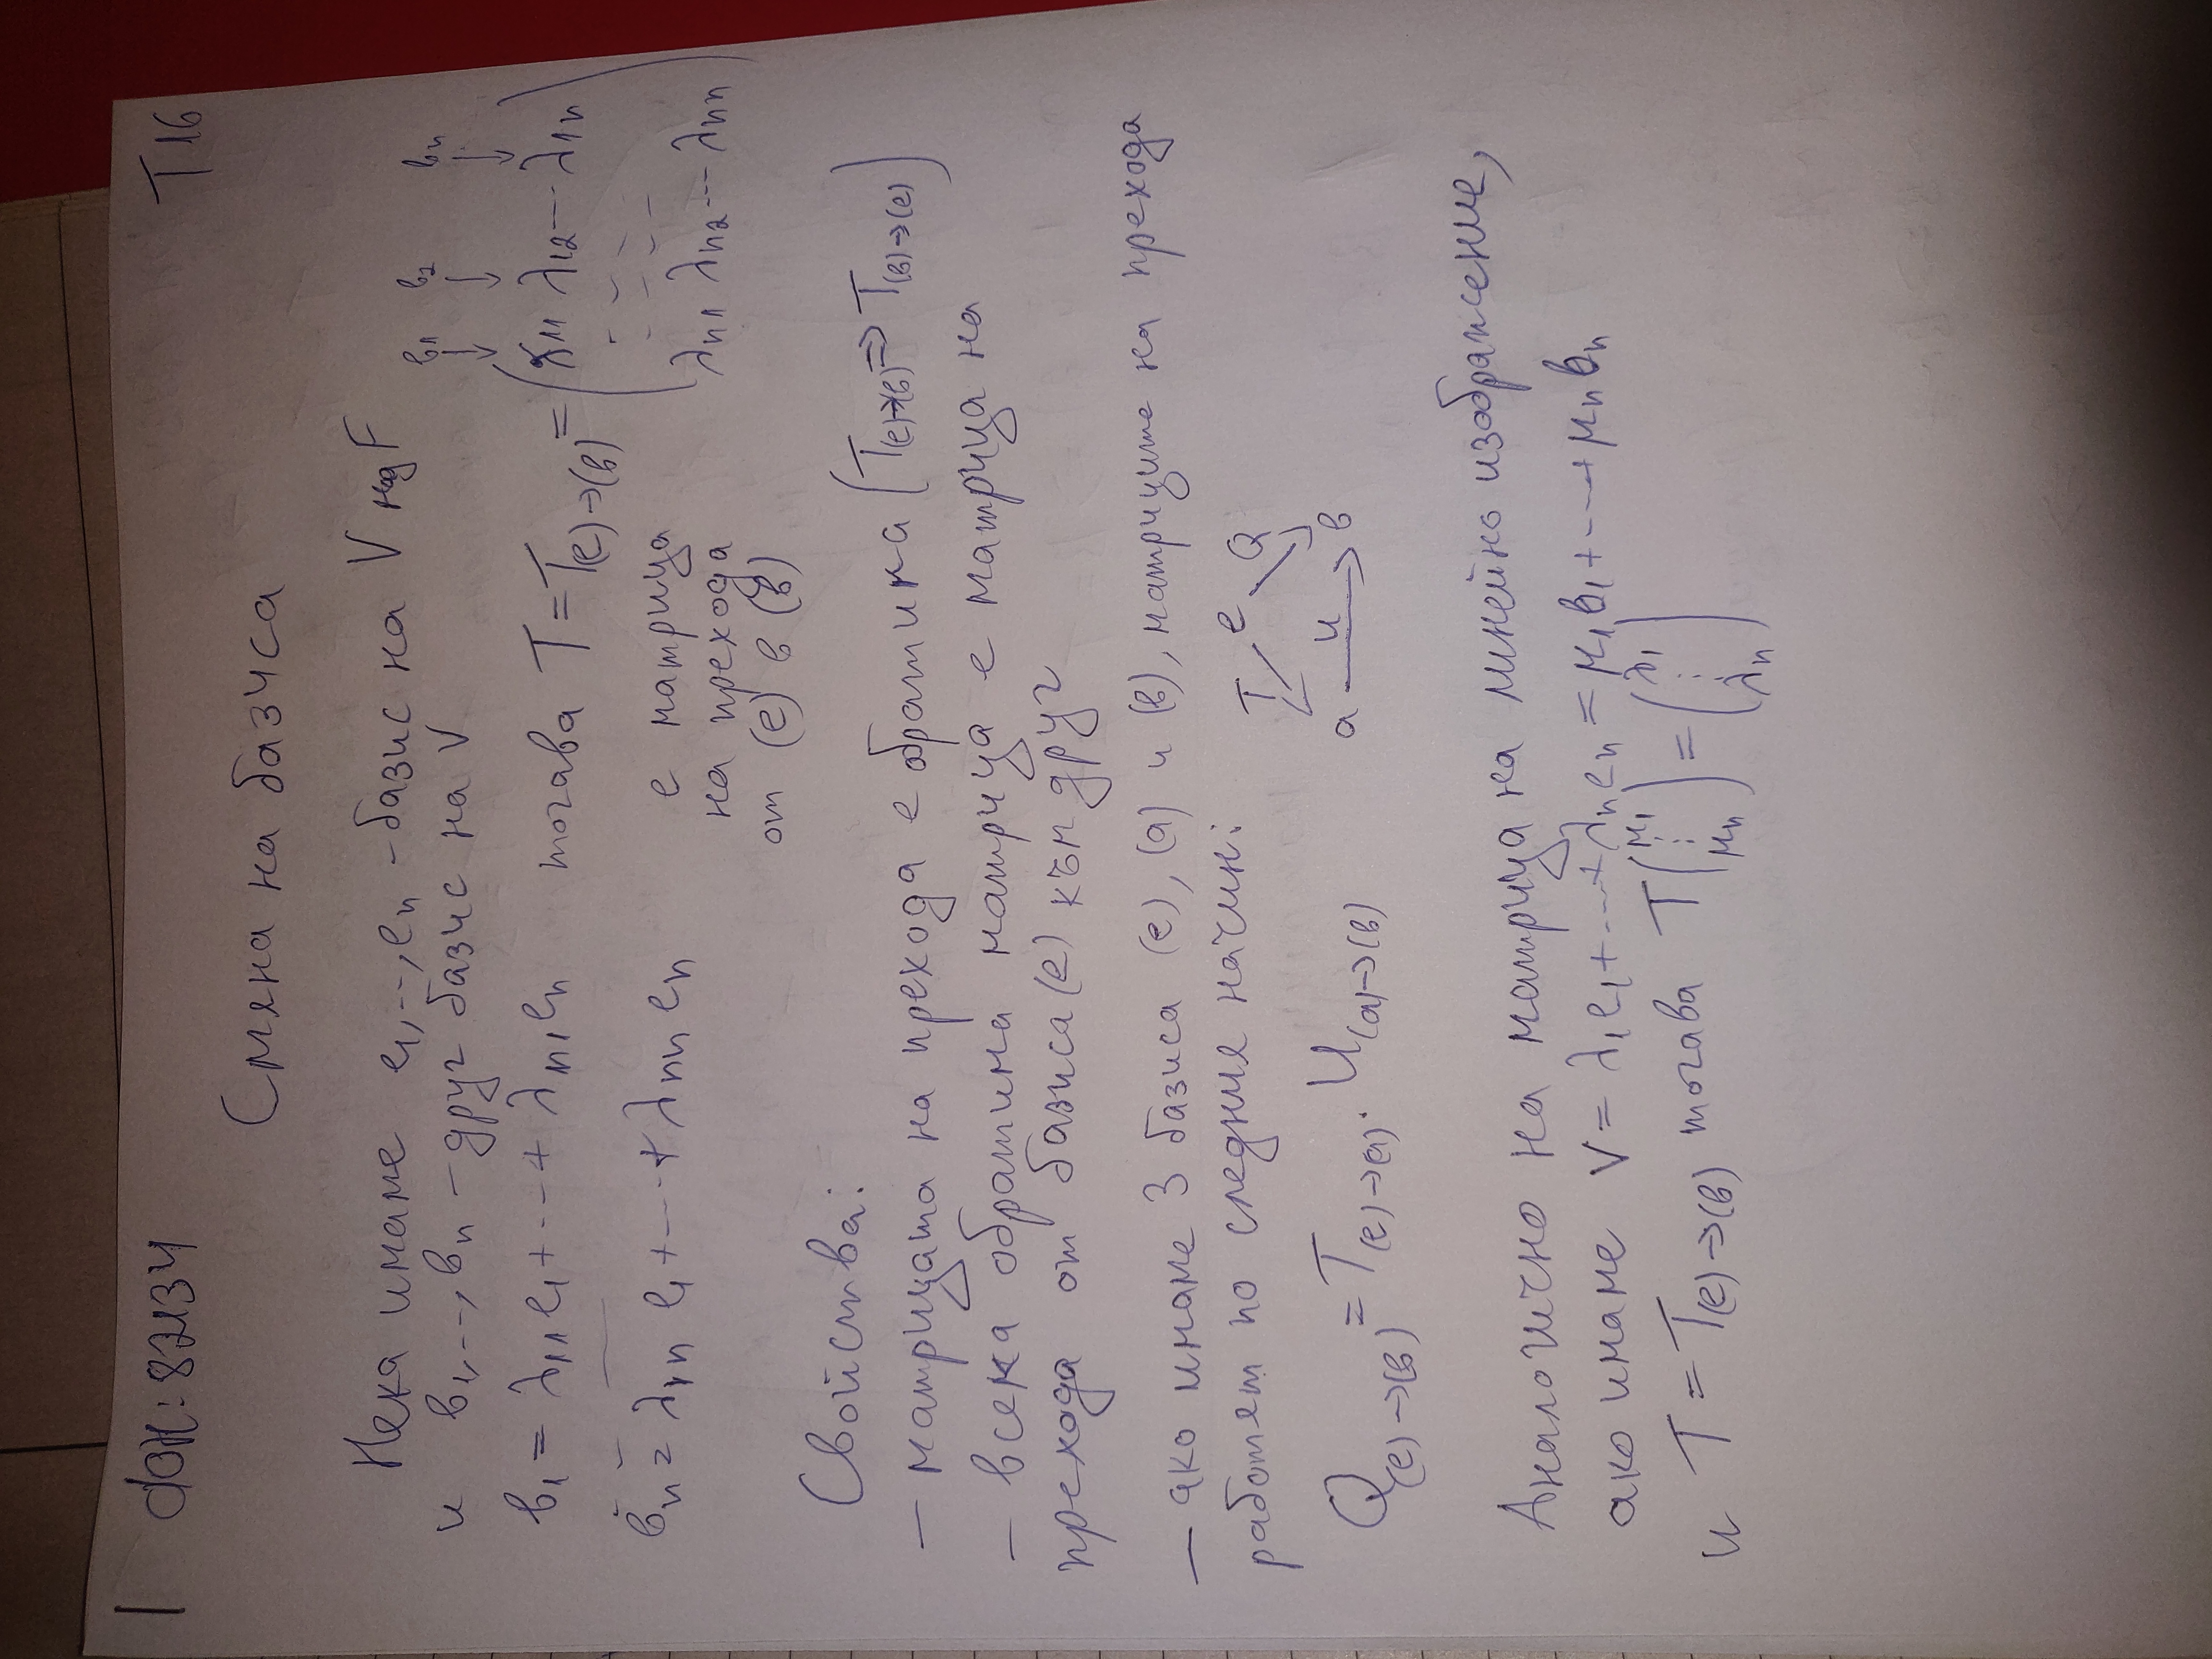 1 ФН: 82134 Т16
Смяна на базиса
Нека имаме e₁,...,eₙ - базис на V над F
и в₁,...,вₙ - друг базис на V
в₁ в₂ вₙ
↓ ↓ ↓
в₁ = λ₁₁e₁+...+ λₙ₁eₙ тогава T = T(e)→(в) = (λ₁₁ λ₁₂ ... λ₁ₙ
вₙ = λ₁ₙ e₁ +...+ λₙₙ eₙ е матрица λₙ₁ λₙ₂ ... λₙₙ)
на прехода
от (e) в (в)
Свойства:
— матрицата на прехода е обратима (T(e)→(в) ⇒ T(в)→(e))
— всека обратима матрица е матрица на
прехода от базиса (e) към друг
— ако имаме 3 базиса (e), (a) и (в), матриците на прехода
работят по следния начин:
T e Q
a U→ в
Q(e)→(в) = T(e)→(a) · U(a)→(в)
Аналогично на матрица на линейно изображение,
ако имаме V = λ₁e₁+...+λₙeₙ = μ₁в₁+...+μₙвₙ
и T = T(e)→(в) тогава T(μ₁ ⋮ μₙ) = (λ₁ ⋮ λₙ)